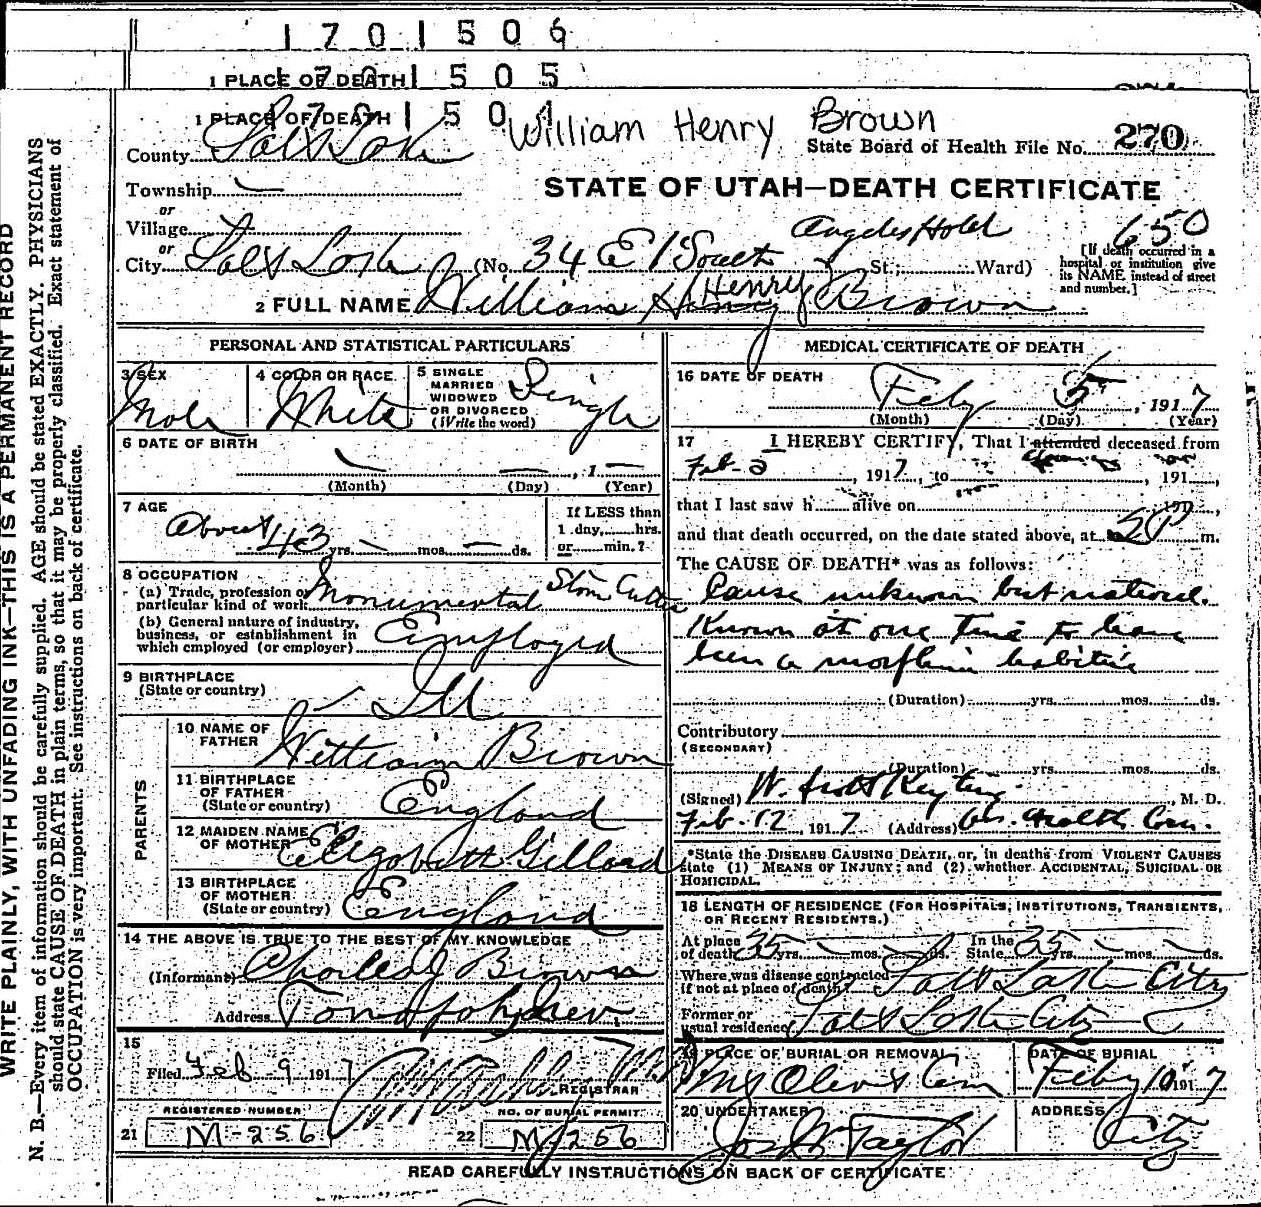 1701506
1 PLACE OF DEATH 1701505
1 PLACE OF DEATH 170150
William Henry Brown
County Salt Lake
State Board of Health File No. 270
Township —
or
Village
or
STATE OF UTAH—DEATH CERTIFICATE
Angeles Hotel
650
City Salt Lake (No. 34 E 1 South St; Ward)
[If death occurred in a hospital or institution give its NAME instead of street and number.]
2 FULL NAME William Henry Brown
Henry
PERSONAL AND STATISTICAL PARTICULARS
3 SEX Male
4 COLOR OR RACE White
5 SINGLE MARRIED WIDOWED OR DIVORCED (Write the word) Single
6 DATE OF BIRTH
— — , 1 —
(Month) (Day) (Year)
7 AGE
About 43 yrs. — mos. — ds.
If LESS than 1 day, hrs. or min.?
8 OCCUPATION
(a) Trade, profession or particular kind of work Monumental Stone Cutter
(b) General nature of industry, business, or establishment in which employed (or employer) Employed
9 BIRTHPLACE
(State or country) Ill
PARENTS
10 NAME OF FATHER William Brown
11 BIRTHPLACE OF FATHER (State or country) England
12 MAIDEN NAME OF MOTHER Elizabeth
13 BIRTHPLACE OF MOTHER (State or country) England
14 THE ABOVE IS TRUE TO THE BEST OF MY KNOWLEDGE
(Informant) Charles J Brown
Address
15
Filed Feb-9 1917
REGISTRAR
REGISTERED NUMBER
21 M-256
NO. OF BURIAL PERMIT
22 M 256
MEDICAL CERTIFICATE OF DEATH
16 DATE OF DEATH
Feby 5, 1917
(Month) (Day) (Year)
17 I HEREBY CERTIFY, That I attended deceased from
Feb- , 1917, to , 191 ,
that I last saw h alive on 191 ,
and that death occurred, on the date stated above, at m.
The CAUSE OF DEATH* was as follows:
Cause unknown but natural.
Known at one time to have
been a morphine habitué
(Duration) yrs. mos. ds.
Contributory
(SECONDARY)
(Duration) yrs. mos. ds.
(Signed) W. Scott Keyting, M. D.
Feb-12, 1917 (Address) Health Com.
*State the DISEASE CAUSING DEATH, or, in deaths from VIOLENT CAUSES
state (1) MEANS OF INJURY; and (2) whether ACCIDENTAL, SUICIDAL OR
HOMICIDAL.
18 LENGTH OF RESIDENCE (FOR HOSPITALS, INSTITUTIONS, TRANSIENTS,
OR RECENT RESIDENTS.)
At place of death 35 yrs. — mos. — ds. In the State 35 yrs. — mos. — ds.
Where was disease contracted if not at place of death? Salt Lake City
Former or usual residence Salt Lake City
19 PLACE OF BURIAL OR REMOVAL
Mt Olivet Cem
DATE OF BURIAL
Feby 10 1917
20 UNDERTAKER
Jos Wm Taylor
ADDRESS
City
READ CAREFULLY INSTRUCTIONS ON BACK OF CERTIFICATE
WRITE PLAINLY, WITH UNFADING INK—THIS IS A PERMANENT RECORD
N. B.—Every item of information should be carefully supplied. AGE should be stated EXACTLY. PHYSICIANS
should state CAUSE OF DEATH in plain terms, so that it may be properly classified. Exact statement of
OCCUPATION is very important. See instructions on back of certificate.